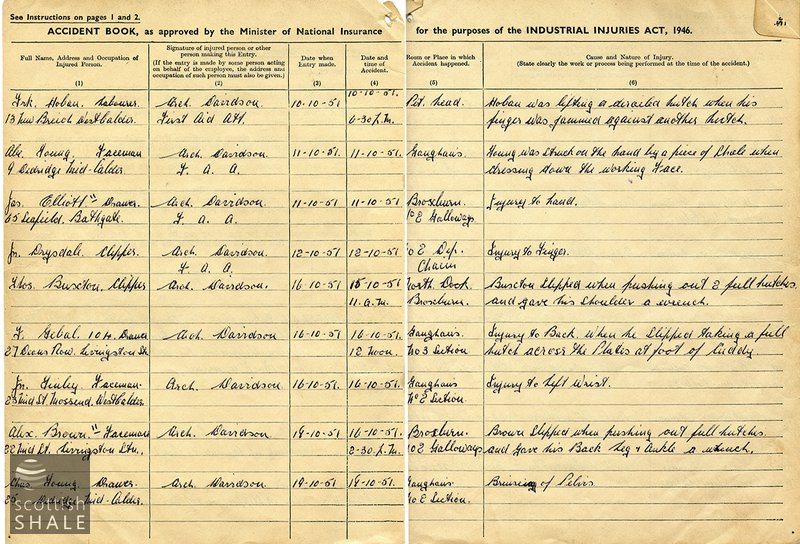 See Instructions on pages 1 and 2.
ACCIDENT BOOK, as approved by the Minister of National Insurance for the purposes of the INDUSTRIAL INJURIES ACT, 1946.
Full Name, Address and Occupation of Injured Person. (1)
Signature of injured person or other person making this Entry. (If the entry is made by some person acting on behalf of the employee, the address and occupation of such person must also be given.) (2)
Date when Entry made. (3)
Date and time of Accident. (4)
Room or Place in which Accident happened. (5)
Cause and Nature of Injury. (State clearly the work or process being performed at the time of the accident.) (6)
Frk. Hoban. Labourer. Arch. Davidson. 10-10-51 10-10-51. Pit head. Hoban was lifting a derailed hutch when his
13 New Breich West Calder. First Aid Att. 6-30 P.M. finger was jammed against another hutch.
Alex. Young. Faceman Arch. Davidson. 11-10-51. 11-10-51. Gavghans. Young was struck on the hand by a piece of Shale when
9 Dedridge Mid-Calder F. A. A. dressing down the working Face.
Jas. Elliott. Drawer. Arch. Davidson. 11-10-51 11-10-51. Broxburn. Injury to hand.
65 Seafield. Bathgate. F. A. A. No E Galloways
Jn. Drysdale. Clipper. Arch. Davidson. 12-10-51 12-10-51. No E Dep. Injury to Finger.
F. A. A. Chain
Thos. Buxton. Clipper Arch. Davidson. 16-10-51 15-10-51 North Dook Buxton slipped when pushing out 2 full hutches.
11. a.m. Broxburn. and gave his shoulder a wrench.
Arch. Davidson 16-10-51 16-10-51. Injury to Back, when he slipped taking a full
27 Deans Row. Livingston Stn 12 noon. No 3 Section hutch across the Plates at foot of Cuddy.
Jn. Faceman. Arch. Davidson. 16-10-51. 16-10-51. Injury to Left Wrist.
Mossend. West Calder No E Section.
Alex. Brown. Faceman Arch. Davidson. 19-10-51 16-10-51. Broxburn. Brown slipped when pushing out full hutches
22 2nd St. Livingston Stn. 2-30. P.M. No E Galloways and gave his Back Leg & Ankle a wrench.
Chas Young. Drawer. Arch. Davidson. 19-10-51 19-10-51. Bruising of Pelvis
25 Dedridge Mid-Calder. No E Section.
scottish
SHALE